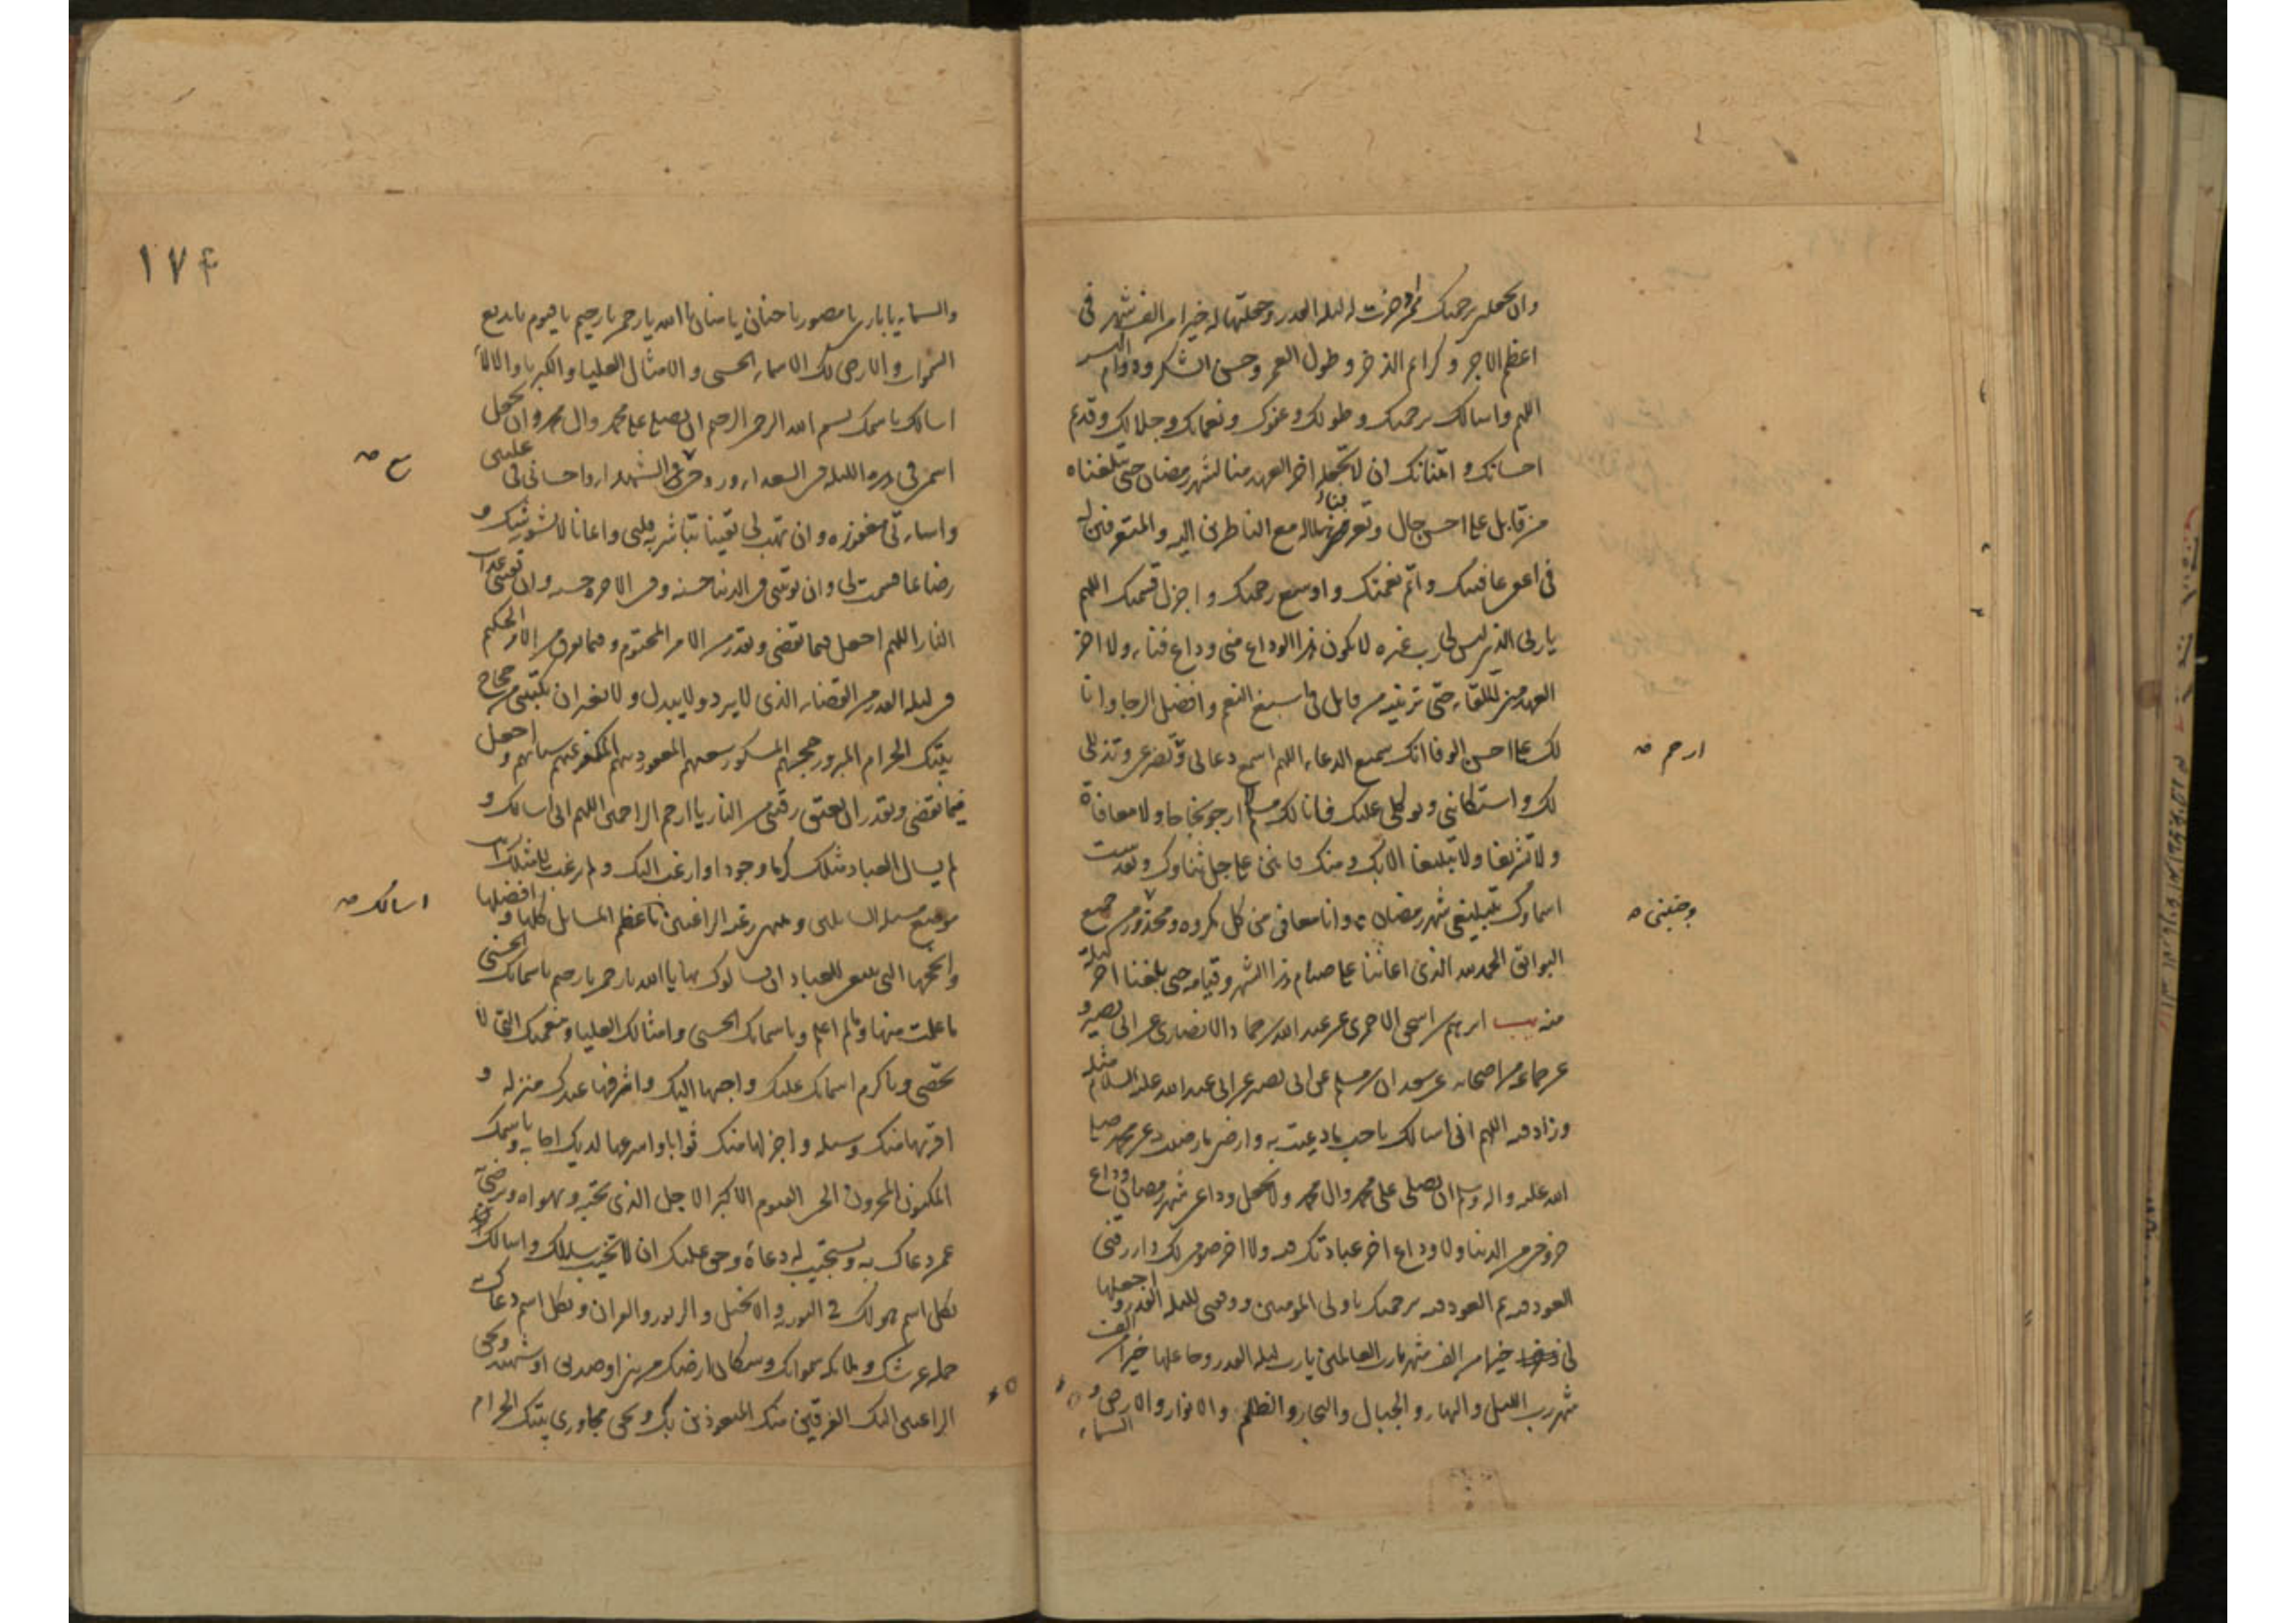 وان تجعلني برحمتك ممن ادخرت له ليلة القدر وجعلتها له خيرا من الف شهر في
اعظم الاجر وكرائم الذخر وطول العمر وحسن الشكر ودوام اليسر
اللهم واسالك برحمتك وطولك وعفوك ونعمائك وجلالك وقديم
احسانك وامتنانك ان لا تجعله اخر العهد منا لشهر رمضان حتى تبلغناه
من قابل على احسن حال وتعرفنا هلاله مع الناظرين اليه والمتعرفين له
في اعفى عافيتك واتم نعمتك واوسع رحمتك واجزل قسمك اللهم
يا ربي الذي ليس لي رب غيره لا يكون هذا الوداع مني وداع فناء ولا اخر
العهد من اللقاء حتى ترينيه من قابل في اسبغ النعم وافضل الرجا وانا
لك على احسن الوفا انك سميع الدعاء اللهم اسمع دعائي و تضرعي وتذللي
ارحم
لك واستكانتي وتوكلي عليك فانا لك سلم لا ارجو نجاحا ولا معافاة
ولا تشريفا ولا تبليغا الا بك ومنك فامنن علي جل ثناؤك وتقدست
اسماؤك بتبليغي شهر رمضان وانا معافى من كل مكروه ومحذور من جميع
وجنبني
البوائق الحمد لله الذي اعاننا على صيام هذا الشهر وقيامه حتى بلغنا اخر ليلة
منه يب ابرهيم بن اسحق الاحمري عن عبد الله بن حماد الانصاري عن ابي بصير و
عن جماعة من اصحابه عن سعدان بن مسلم عن ابي بصير عن ابي عبد الله عليه السلام مثله
وزاد فيه اللهم اني اسالك باحب ما دعيت به وارضى ما رضيت به عن محمد صلى
الله عليه واله وسلم ان تصلي على محمد وال محمد ولا تجعل وداع شهر رمضان وداع
خروجي من الدنيا ولا وداع اخر عبادتك فيه ولا اخر صومي لك وارزقني
العود فيه ثم العود فيه برحمتك يا ولي المؤمنين ووفقني لليلة القدر واجعلها
لي خيرا من الف شهر يا رب العالمين يا رب ليلة القدر وجاعلها خيرا من الف
شهر رب الليل والنهار والجبال والبحار والظلم والانوار والارض و
السماء
١٧٤
والسماء يا بارئ يا مصور يا حنان يا منان يا الله يا رحمن يا رحيم يا قيوم يا بديع
السموات والارض لك الاسماء الحسنى والامثال العليا والكبرياء والالاء
اسالك باسمك بسم الله الرحمن الرحيم ان تصلي على محمد وال محمد وان تجعل
اسمي في هذه الليلة في السعداء وروحي مع الشهداء واحساني في عليين
ع
واساءتي مغفورة وان تهب لي يقينا تباشر به قلبي وايمانا لا يشوبه شك و
رضا بما قسمت لي وان تؤتني في الدنيا حسنة وفي الاخرة حسنة وان تقيني عذاب
النار اللهم اجعل فيما تقضي وتقدر من الامر المحتوم وفيما تفرق من الامر الحكيم
في ليلة القدر من القضاء الذي لا يرد ولا يبدل ولا يغير ان تكتبني من حجاج
بيتك الحرام المبرور حجهم المشكور سعيهم المغفور ذنبهم المكفر عنهم سيئاتهم واجعل
فيما تقضي وتقدر ان تعتق رقبتي من النار يا ارحم الراحمين اللهم اني اسالك و
لم يسال العباد مثلك كرما وجودا وارغب اليك ولم يرغب الى مثلك انت
موضع مسالة السائلين ومنتهى رغبة الراغبين باعظم المسائل كلها وافضلها
اسالك
وانجحها التي ينبغي للعباد ان يسالوك بها يا الله يا رحمن يا رحيم باسمائك الحسنى
ما علمت منها وما لم اعلم وباسمائك الحسنى وامثالك العليا ونعمتك التي لا
تحصى وباكرم اسمائك عليك واحبها اليك واشرفها عندك منزلة و
اقربها منك وسيلة واجزلها منك ثوابا واسرعها لديك اجابة وباسمك
المكنون المخزون الحي القيوم الاكبر الاجل الذي تحبه وتهواه وترضى به
عمن دعاك به وتستجيب له دعاءه وحق عليك ان لا تخيب سائلك واسالك
بكل اسم هو لك في التورية والانجيل والزبور والقران وبكل اسم دعاك به
حملة عرشك وملائكة سمواتك وسكان ارضك من نبي او صديق او شهيد وبحق
الراغبين اليك الفرقين منك المتعوذين بك وبحق مجاوري بيتك الحرام